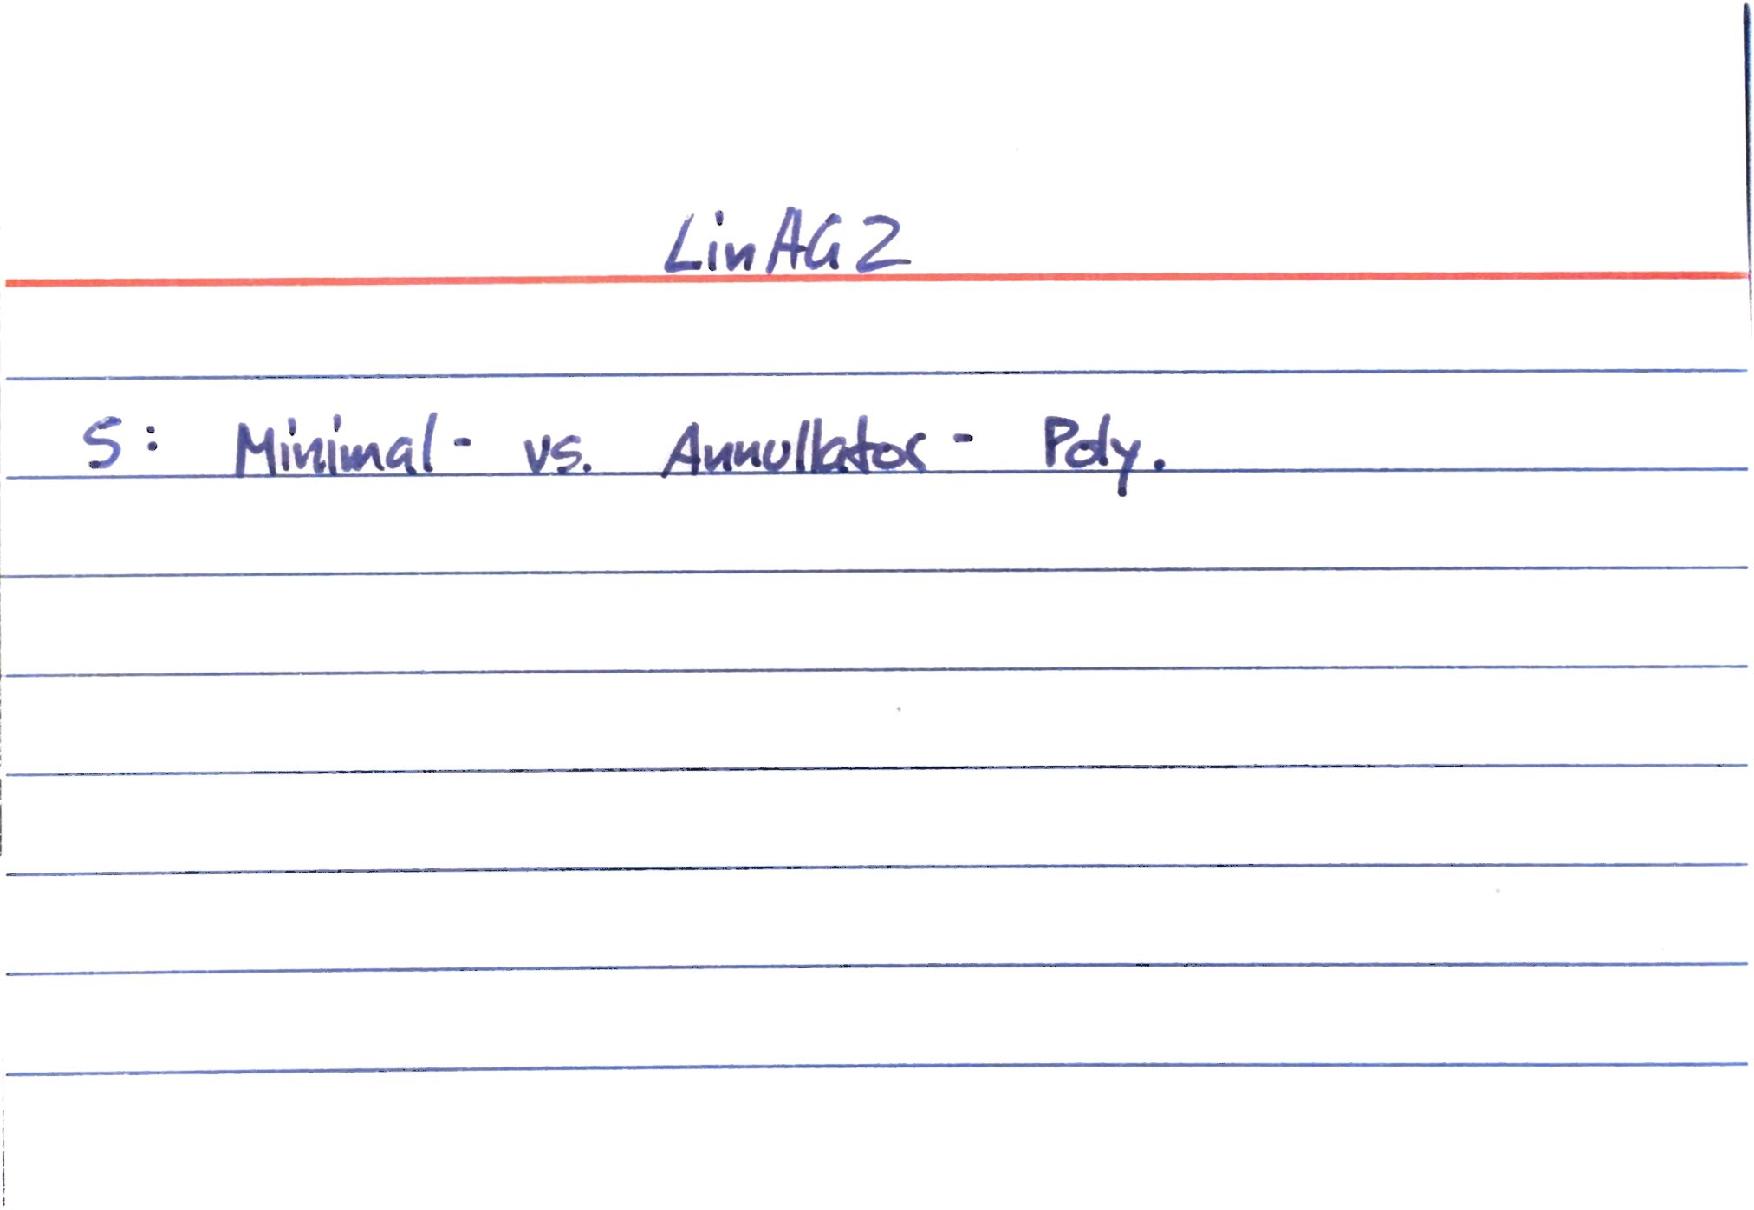 LinAG2
S: Minimal- vs. Annullator- Poly.